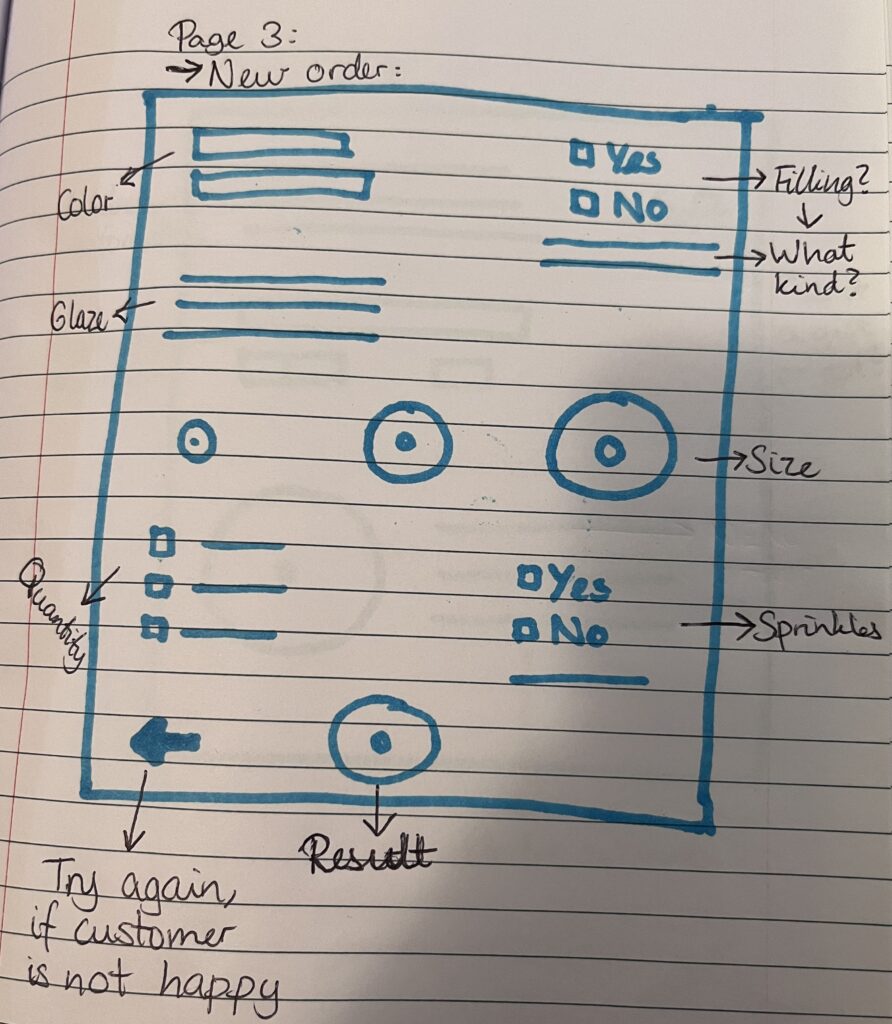 Page 3:
→ New order:
Color
Yes
No
Filling?
What
kind?
Glaze
Size
Quantity
Yes
No
Sprinkles
Result
Try again,
if customer
is not happy